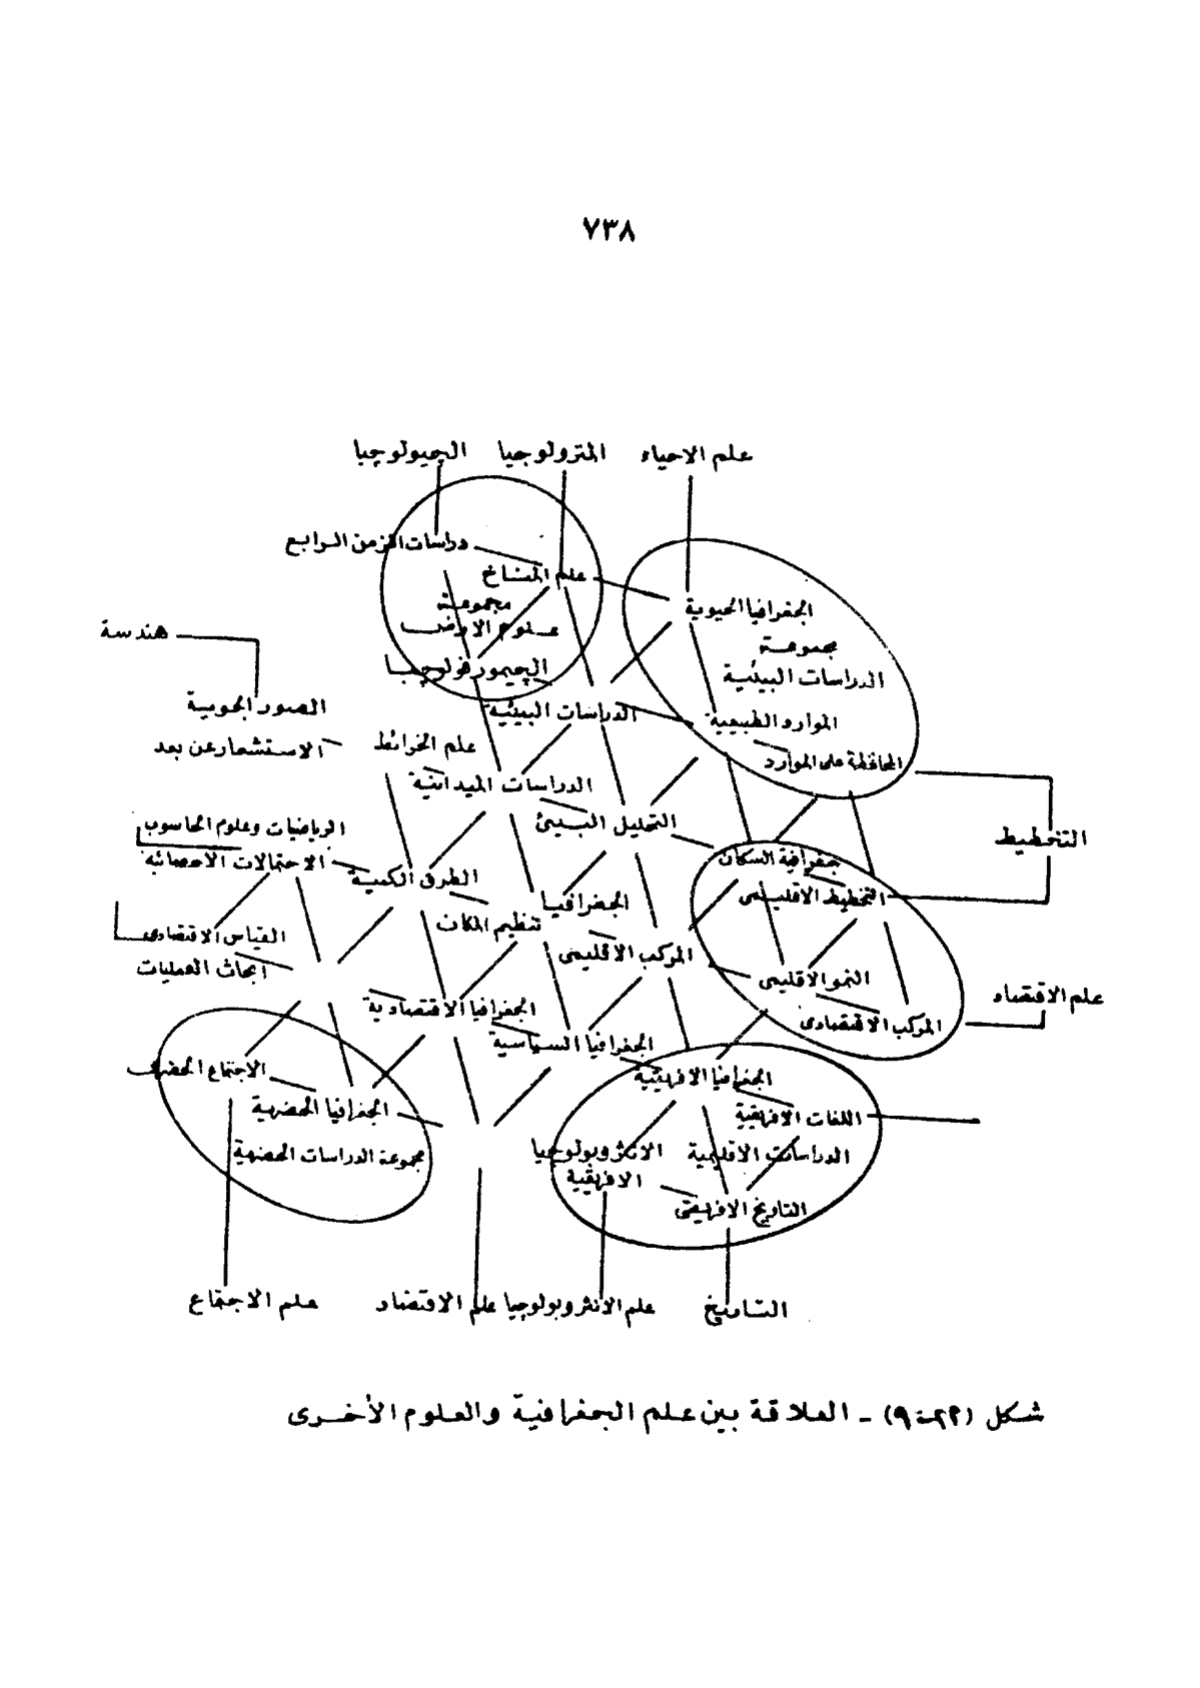 ٧٣٨
علم الاحياء
المترولوجيا
الجيولوجيا
دراسات الزمن الرابع
علم المناخ
مجموعة
علوم الارض
الجيمورفولوجيا
الجغرافيا الحيوية
مجموعة
الدراسات البيئية
الموارد الطبيعية
المحافظة على الموارد
هندسة
الصور الجوية
الاستشعار عن بعد
علم الخرائط
الدراسات البيئية
الدراسات الميدانية
التحليل البيئ
التخطيط
الرياضيات وعلوم الحاسوب
الاحتمالات الاحصائيه
الطرق الكمية
جغرافية السكان
التخطيط الاقليمى
الجغرافيا
تنظيم المكان
القياس الاقتصادى
ابحاث العمليات
المركب الاقليمى
النمو الاقليمى
المركب الاقتصادى
علم الاقتصاد
الجغرافيا الاقتصادية
الجغرافيا السياسية
الاجتماع الحضرى
الجغرافيا الحضرية
مجموعة الدراسات الحضرية
الجغرافيا الافريقية
اللغات الافريقية
الدراسات الاقليمية
الانثروبولوجيا
الافريقية
التاريخ الافريقى
التاريخ
علم الانثروبولوجيا
علم الاقتصاد
علم الاجتماع
شكل - العلاقة بين علم الجغرافية والعلوم الأخرى